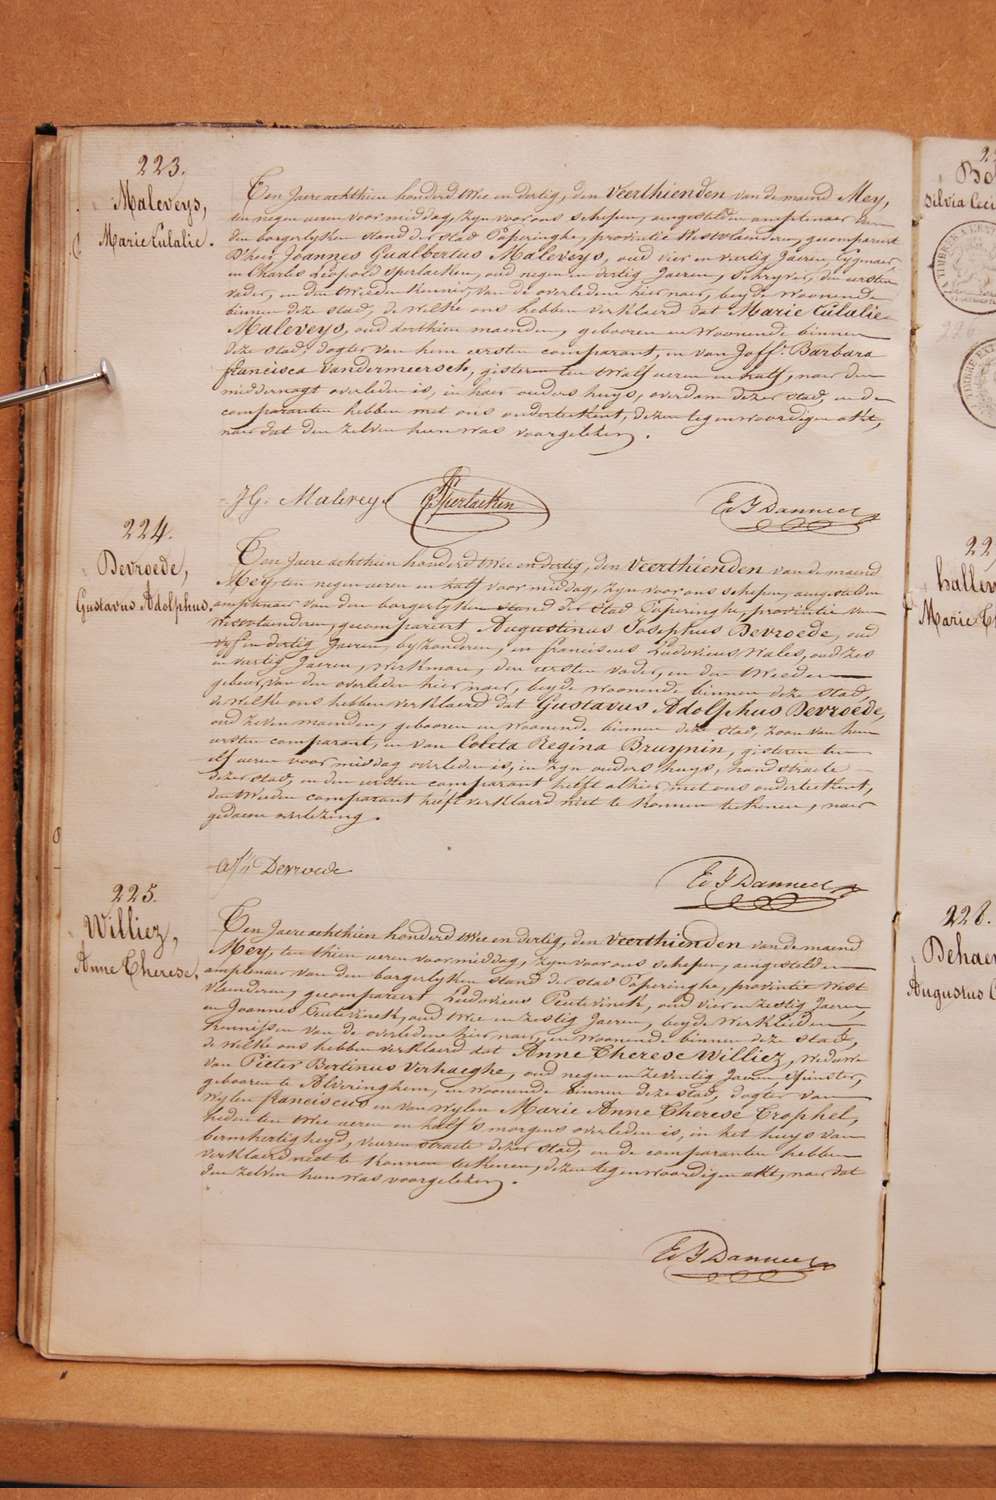 223.
Maleveys,
Marie Eulalie.
Ten Jaere achthien honderd twee en dertig, den veerthienden van de maend Mey,
ten negen ueren voor middag, zyn voor ons schepen, aengestelden amptenaer van
den borgerlyken stand der stad Poperinghe, provintie Westvlanderen, gecompareert
D'heer Joannes Gualbertus Maleveys, oud vier en veertig Jaeren,
en Charles Léopold Sperlaeken, oud negen en dertig Jaeren, schryver, den eersten
vader, en den tweeden kennis, van de overledene hier naer, beyde woonende
binnen deze stad, de welke ons hebben verklaerd dat Marie Eulalie
Maleveys, oud derthien maenden, gebooren en woonende binnen
deze stad, dogter van hem eersten comparant, en van Joffr. Barbara
francisca Vandermeersch, gisteren ten twalf ueren en half, naer den
middernagt overleden is, in haer ouders huys, overdam dezer stad, en de
comparanten hebben met ons onderteekent, dezen tegenwoordigen akt,
naer dat den zelven hun was voorgelezen.
JG. Maleveys Sperlaeken E J Danneel
224.
Devroede,
Gustavus Adolphus.
Ten Jaere achthien honderd twee en dertig, den veerthienden van de maend
Mey, ten negen ueren en half voor middag, zyn voor ons schepen, aengestelden
amptenaer van den borgerlyken stand der stad Poperinghe, provintie van
Westvlanderen, gecompareert Augustinus Josephus Devroede, oud
vyf en dertig Jaeren, byzonderen, en franciscus Ludovicus Wales, oud zes
en vertig Jaeren, werkman, den eersten vader, en den tweeden
gebuer, van den overleden hier naer, beyde woonende binnen deze stad,
de welke ons hebben verklaerd dat Gustavus Adolphus Devroede,
oud zeven maenden, gebooren en woonende binnen deze stad, zoon van hem
eersten comparant, en van Coleta Regina Bruynin, gisteren ten
elf ueren voor middag overleden is, in zyn ouders huys, hondstraete
dezer stad, en den eersten comparant heeft alhier met ons onderteekent,
den tweeden comparant heeft verklaerd niet te konnen teekenen, naer
gedaene verlezing.
Devroede E J Danneel
225.
Williez,
Anne Therese.
Ten Jaere achthien honderd twee en dertig, den veerthienden van de maend
Mey, ten thien ueren voor middag, zyn voor ons schepen, aengestelden
amptenaer van den borgerlyken stand der stad Poperinghe, provintie West
vlanderen, gecompareert Ludovicus Peutevinck, oud vier en zestig Jaeren,
en Joannes Peutevinck, oud twee en zestig Jaeren, beyde werklieden
kennissen van de overledene hier naer, en woonende binnen deze stad,
de welke ons hebben verklaerd dat Anne Therese Williez, weduwe
van Pieter Bertinus Verhaeghe, oud negen en zeventig Jaeren spinster,
gebooren te Alveringhem, en woonende binnen deze stad, dogter van
wylen franciscus en van wylen Marie Anne Therese Trophel,
heden ten twee ueren en half 's morgens overleden is, in het huys van
bermhertigheyd, veuren straete dezer stad, en de comparanten hebben
verklaerd niet te konnen teekenen, dezen tegenwoordigen akt, naer dat
den zelven hun was voorgelezen.
E J Danneel
silvia
Marie
228.
Augustus